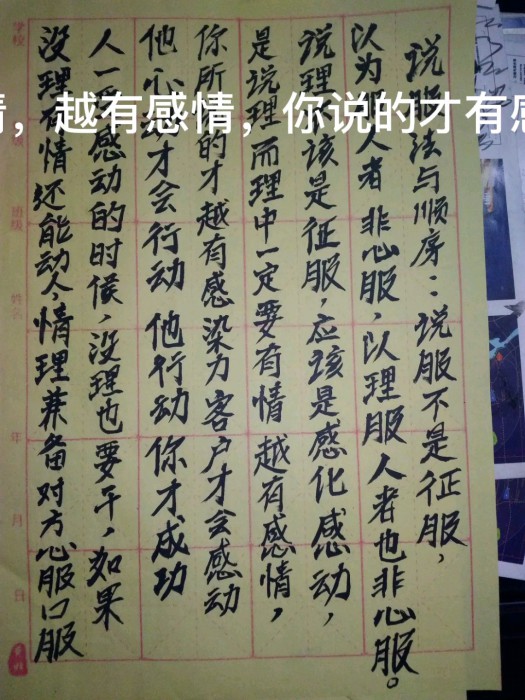 说服法与顺序：说服不是征服，
以为服人者非心服，以理服人者也非心服。
说理不该是征服，应该是感化感动，
是说理而理中一定要有情越有感情，
你所说的才越有感染力客户才会感动
他心动才会行动他行动你才成功
人一旦感动的时候，没理也要干，如果
没理有情还能动人，情理兼备对方心服口服
情，越有感情，你说的才有感
学校
班级
姓名
年 月 日